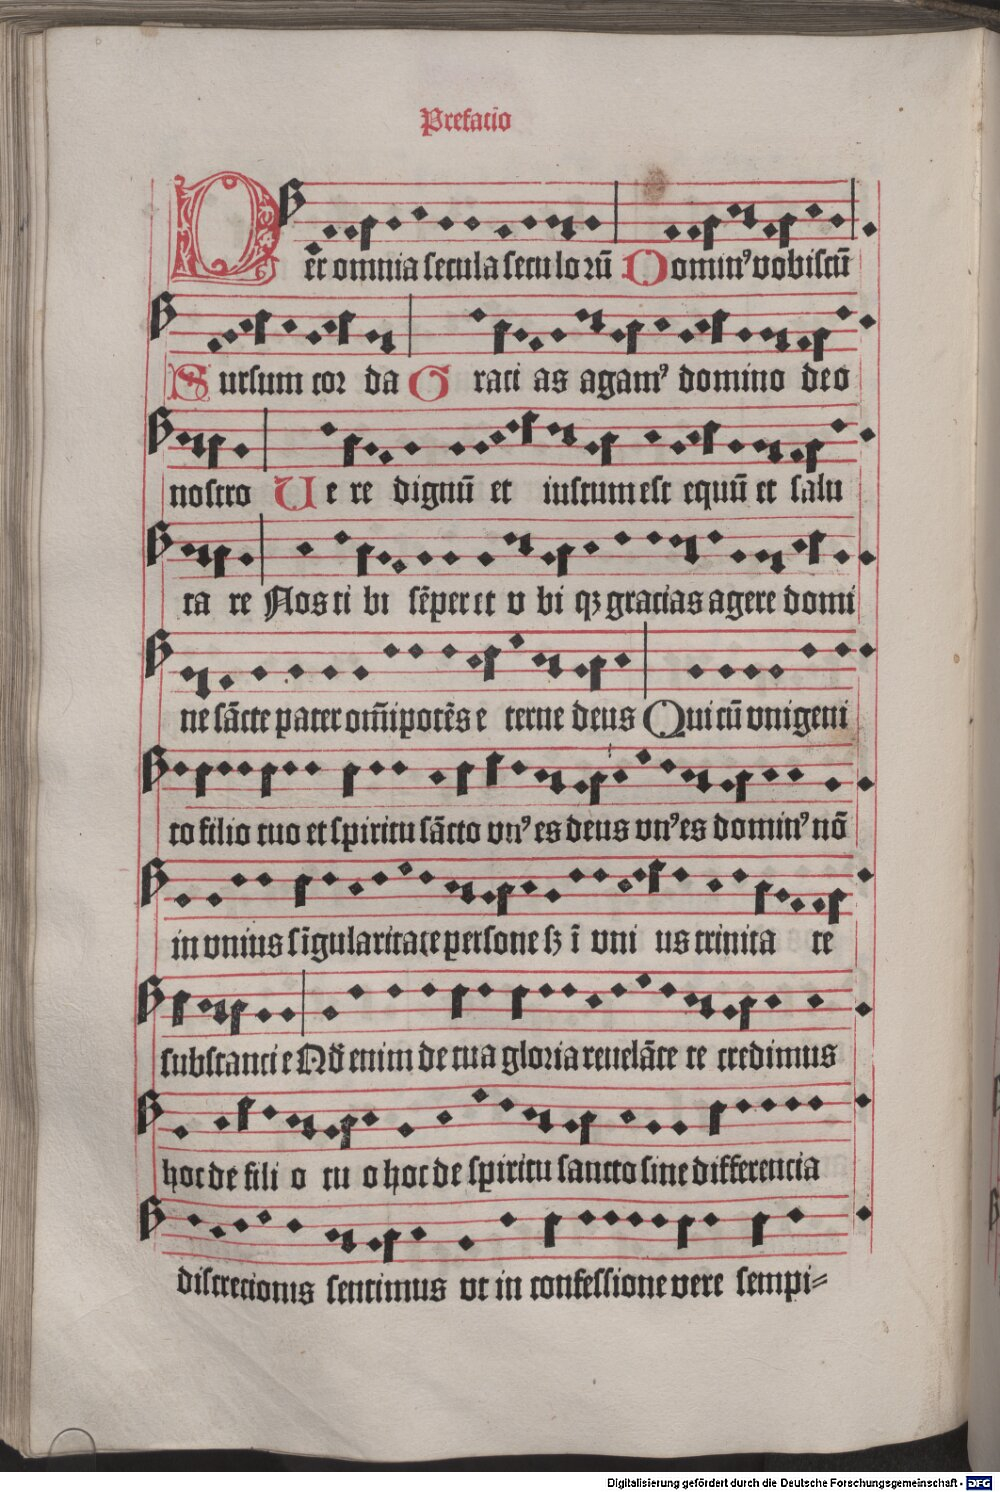 Prefacio
Per omnia secula seculorū Domin⁹ vobiscū
Sursum cor da Graci as agam⁹ domino deo
nostro Ue re dignū et iustum est equū et salu
ta re Nos ti bi sēper et v bi qꝫ gracias agere domi
ne sācte pater om̄ipotēs e terne deus Qui cū vnigeni
to filio tuo et spiritu sācto vn⁹ es deus vn⁹ es domin⁹ nō
in vnius sīgularitate persone sꝫ ī vni us trinita te
substanci e Nō enim de tua gloria reuelāte te credimus
hoc de fili o tu o hoc de spiritu sancto sine differencia
discrecionis sentimus vt in confessione vere sempi⸗
Digitalisierung gefördert durch die Deutsche Forschungsgemeinschaft - DFG